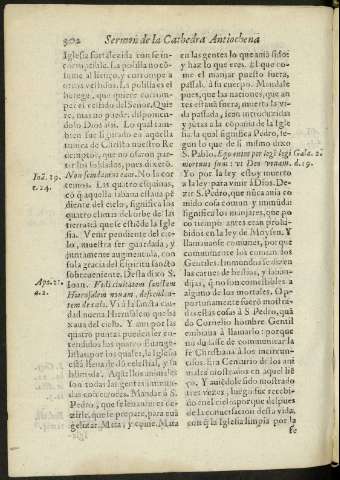 302 Sermon de la Cathedra Antiochena
Iglesia fortalezida con se in-
corruptible. La polilla no cō-
sume al lienço, y corrompe a
otros vestidos. La polilla es el
herege, que quiere corrom-
per el vestido del Señor. Quie
re, mas no puede, disponien-
dolo Dios assi. Lo qual tam-
bien fue figurado en aquella
tunica de Christo nuestro Re
demptor, que no osaron par-
tir los soldados, pues dixerō.
Ioā. 19. Non scindamus eam. No la cor
c. 24. temos. Las quatro esquinas,
cō q̄ aquella sabana estaua pē
diente del cielo, significa los
quatro climas del orbe de las
tierras a q̄ se estiēde la Igle
sia. Venir pendiente del cie-
lo, muestra ser guardada, y
juntamente augmentada, con
sola gracia del Espiritu sancto
sobreueniente. Desta dixo S.
Apo. 21. Ioan. Vidi ciuitatem sanctam
a. 2. Hierusalem nouam, descenden-
tem de cælo. Vi a la Sancta ciu-
dad nueua Hierusalem que ba
xaua del cielo. Y tam-
quatro puntas pueden ser en-
tendidos los quatro Euange-
listas, por los quales, la Iglesia
està llena de dō celestial, y su
blimada. Aquellos animales
son todas las gentes immun-
das conuocadas. Mandar à S.
Pedro, que se leuante es de-
zirle, que se prepare, para euā
gelizar. Mata, y come. Mata
en las gentes lo que aniā sido:
y haz lo que eres. El que co-
me el manjar puesto fuera,
passalo à su cuerpo. Manda le
pues, que las naciones, que an
tes estauā fuera, muerta la vi-
da passada, sean introduzidas
y jūtas a la cōpañia de la Igle
sia la qual significa Pedro, se-
gun lo que de si mismo dixo
S. Pablo. Ego enim per legē legi Gala. 2.
mortuus sum: vt Deo viuam. d. 19.
Yo por la ley estoy muerto
a la ley para viuir à Dios. De-
zir S. Pedro, que nūca auia co
mido cosa comun y immūda:
significa los manjares, que co-
mo tiempo antes eran pro
hibidos en la ley de Moysen. Y
llamauanse comunes, porque
comunmente los comian los
Gentiles. Immundas se dizen
las carnes de bestias, y sabān-
dijas, q̄ no son comestibles a
algunos de los mortales. O
portunamente fuerō mostra-
das estas cosas à S. Pedro, quā
do Cornelio hombre Gentil
embiaua à llamarlo: porque
no dudasse de comunicar la
fe Christiana a los incircun-
cisos. Era Centurio de los ani
males mostrados en aquel liē
ço. Y auiēdole sido mostrado
tres vezes, luego fue recebi-
do en el cielo: porque despues
de la conuersacion desta vida,
con q̄ la Iglesia limpia por la
fe